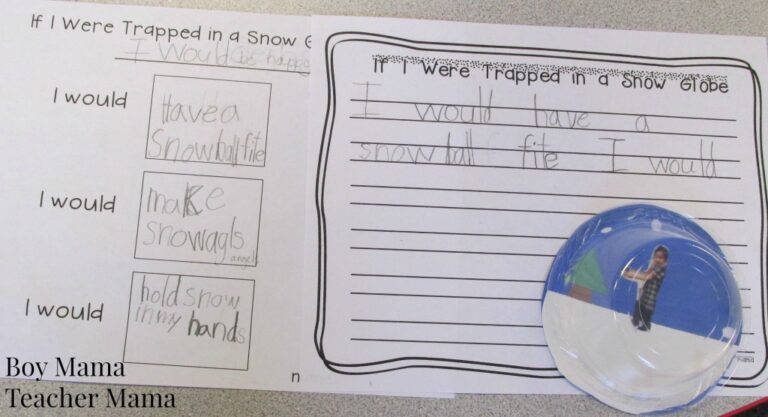 If I Were Trapped in a Snow G
I Would
happy
I would
Have a
Snowball fite
I would
make
snowagls
angels
I would
hold snow
in my hands
n
If I Were Trapped in a Snow Globe
I would have a
snowball fite I would
Boy Mama
Teacher Mama